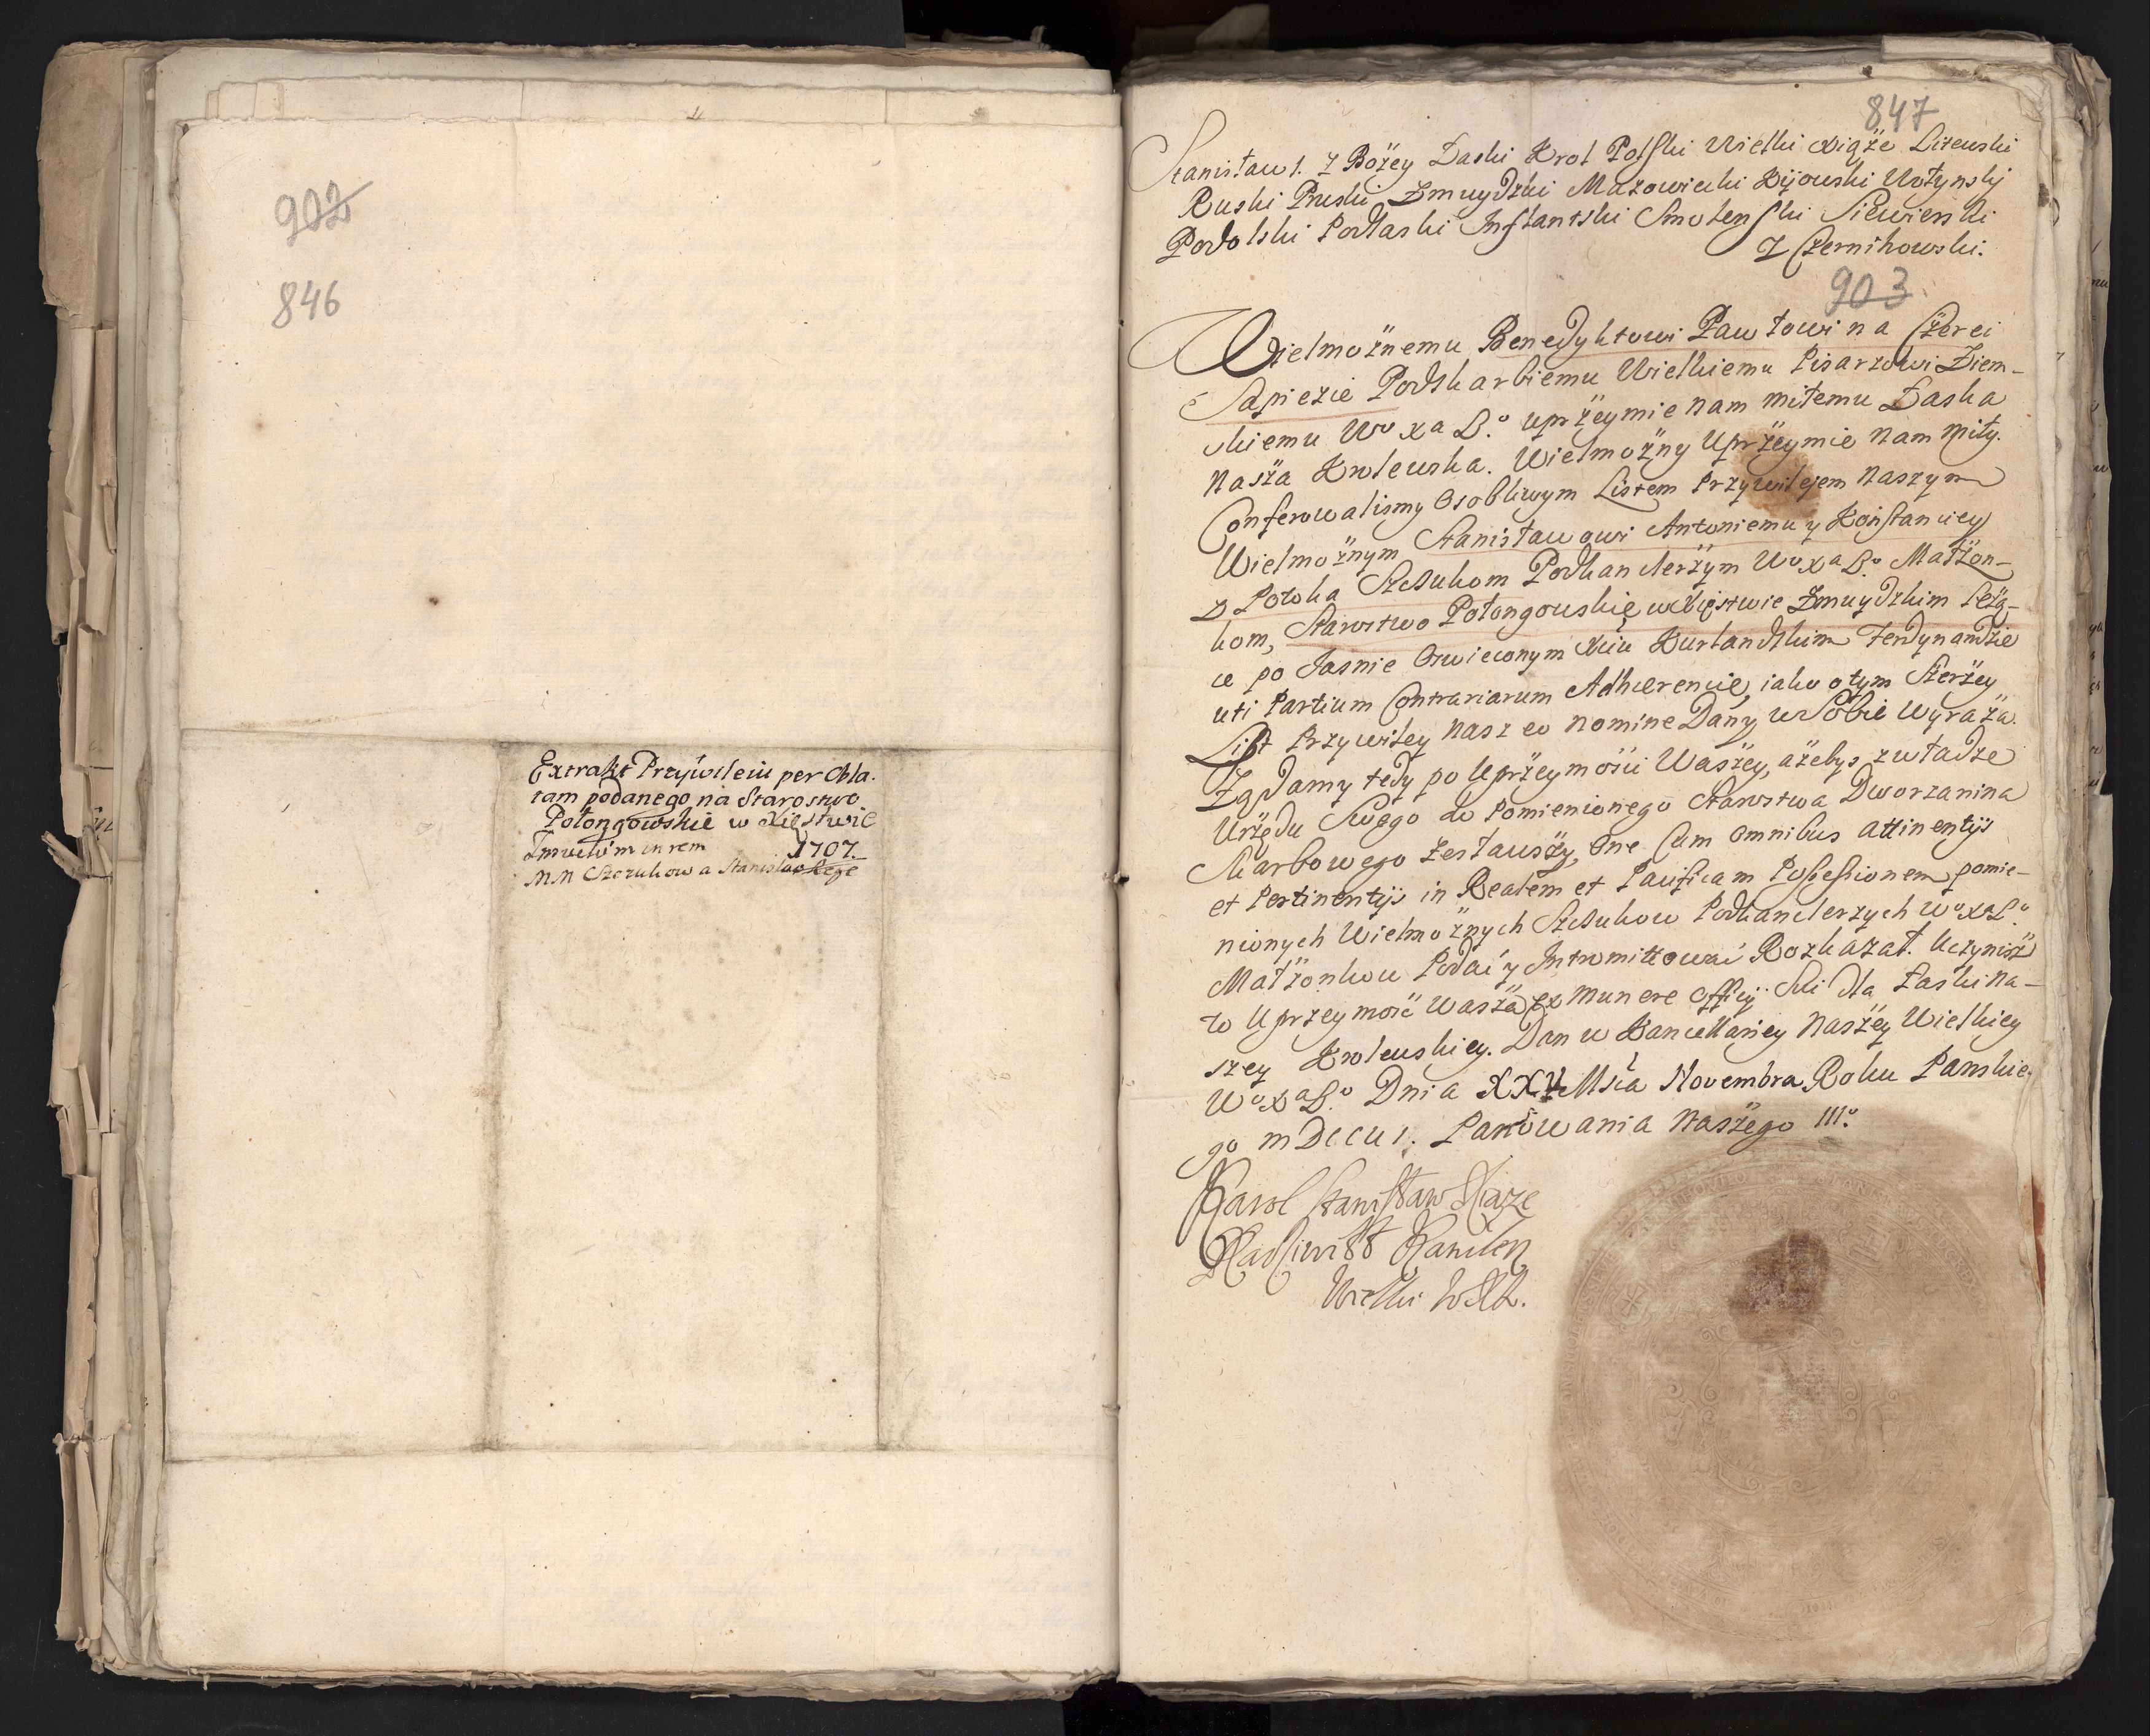 902
846
Extrakt Przywileiu per Obla-
tam podanego na Starostwo
Połongowskie w Xięstwie
Zmudzim in rem 1707.
MM Szczukow a Stanislao Rege
847
Stanisław 1. z Bożey Łaski Krol Polski Wielki Xiąże Litewski
Ruski Pruski Zmuydzki Mazowiecki Kijowski Wołynskj
Podolski Podlaski Inflantski Smolenski Siewierski
Y Czernihowski.
903
Wielmożnemu Benedyktowi Pawłowi na Czerei
Sapiezie Podskarbiemu Wielkiemu Pisarzowi Ziem-
skiemu Wo Xa Lo uprzeymie nam miłemu Łaska
Nasza Krolewska. Wielmożny Uprzeymie nam miły.
Conferowalismy Osobliwym Listem Przywilejem Naszym
Wielmożnym Stanisławowi Antoniemu y Konstanciey
z Potoka Szczukom Podkanclerzym Wo Xa Lo Małżon-
kom, Starostwo Połongowskie w Xięstwie Zmuydzkim Leżą-
ce po Jasnie Oswieconym Xciu Kurlandzkim Ferdynandzie
uti Partium Contrariarum Adhaerencie, iako o tym Szerzey
List Przywiley Nasz eo nomine Dany w Sobie wyraża.
Żądamy tedy po Uprzeymosci Waszey, ażebys z władze
Urzędu Swego do Pomienionego Starostwa Dworzanina
Skarbowego zesławszy, One Cum Omnibus attinentijs
et Pertinentijs in Realem et Pacificam Possessionem pomie-
nionych Wielmożnych Szczukow Podkanclerzych Wo Xa Lo
Małżonkow Podać y Intromittować Rozkazał. Uczynisz
to Uprzeymość Wasza ex Munere Officij Sui dla Łaski Na-
szey Krolewskiey. Dan w Kancellariey Naszey Wielkiey
Wo Xa Lo Dnia XXV Msca Novembra Roku Panskie-
go MDCCVI. Panowania Naszego III.o
Karol Stanisław Xiąze
Radziwiłł Kanclerz
Wielki WXL.